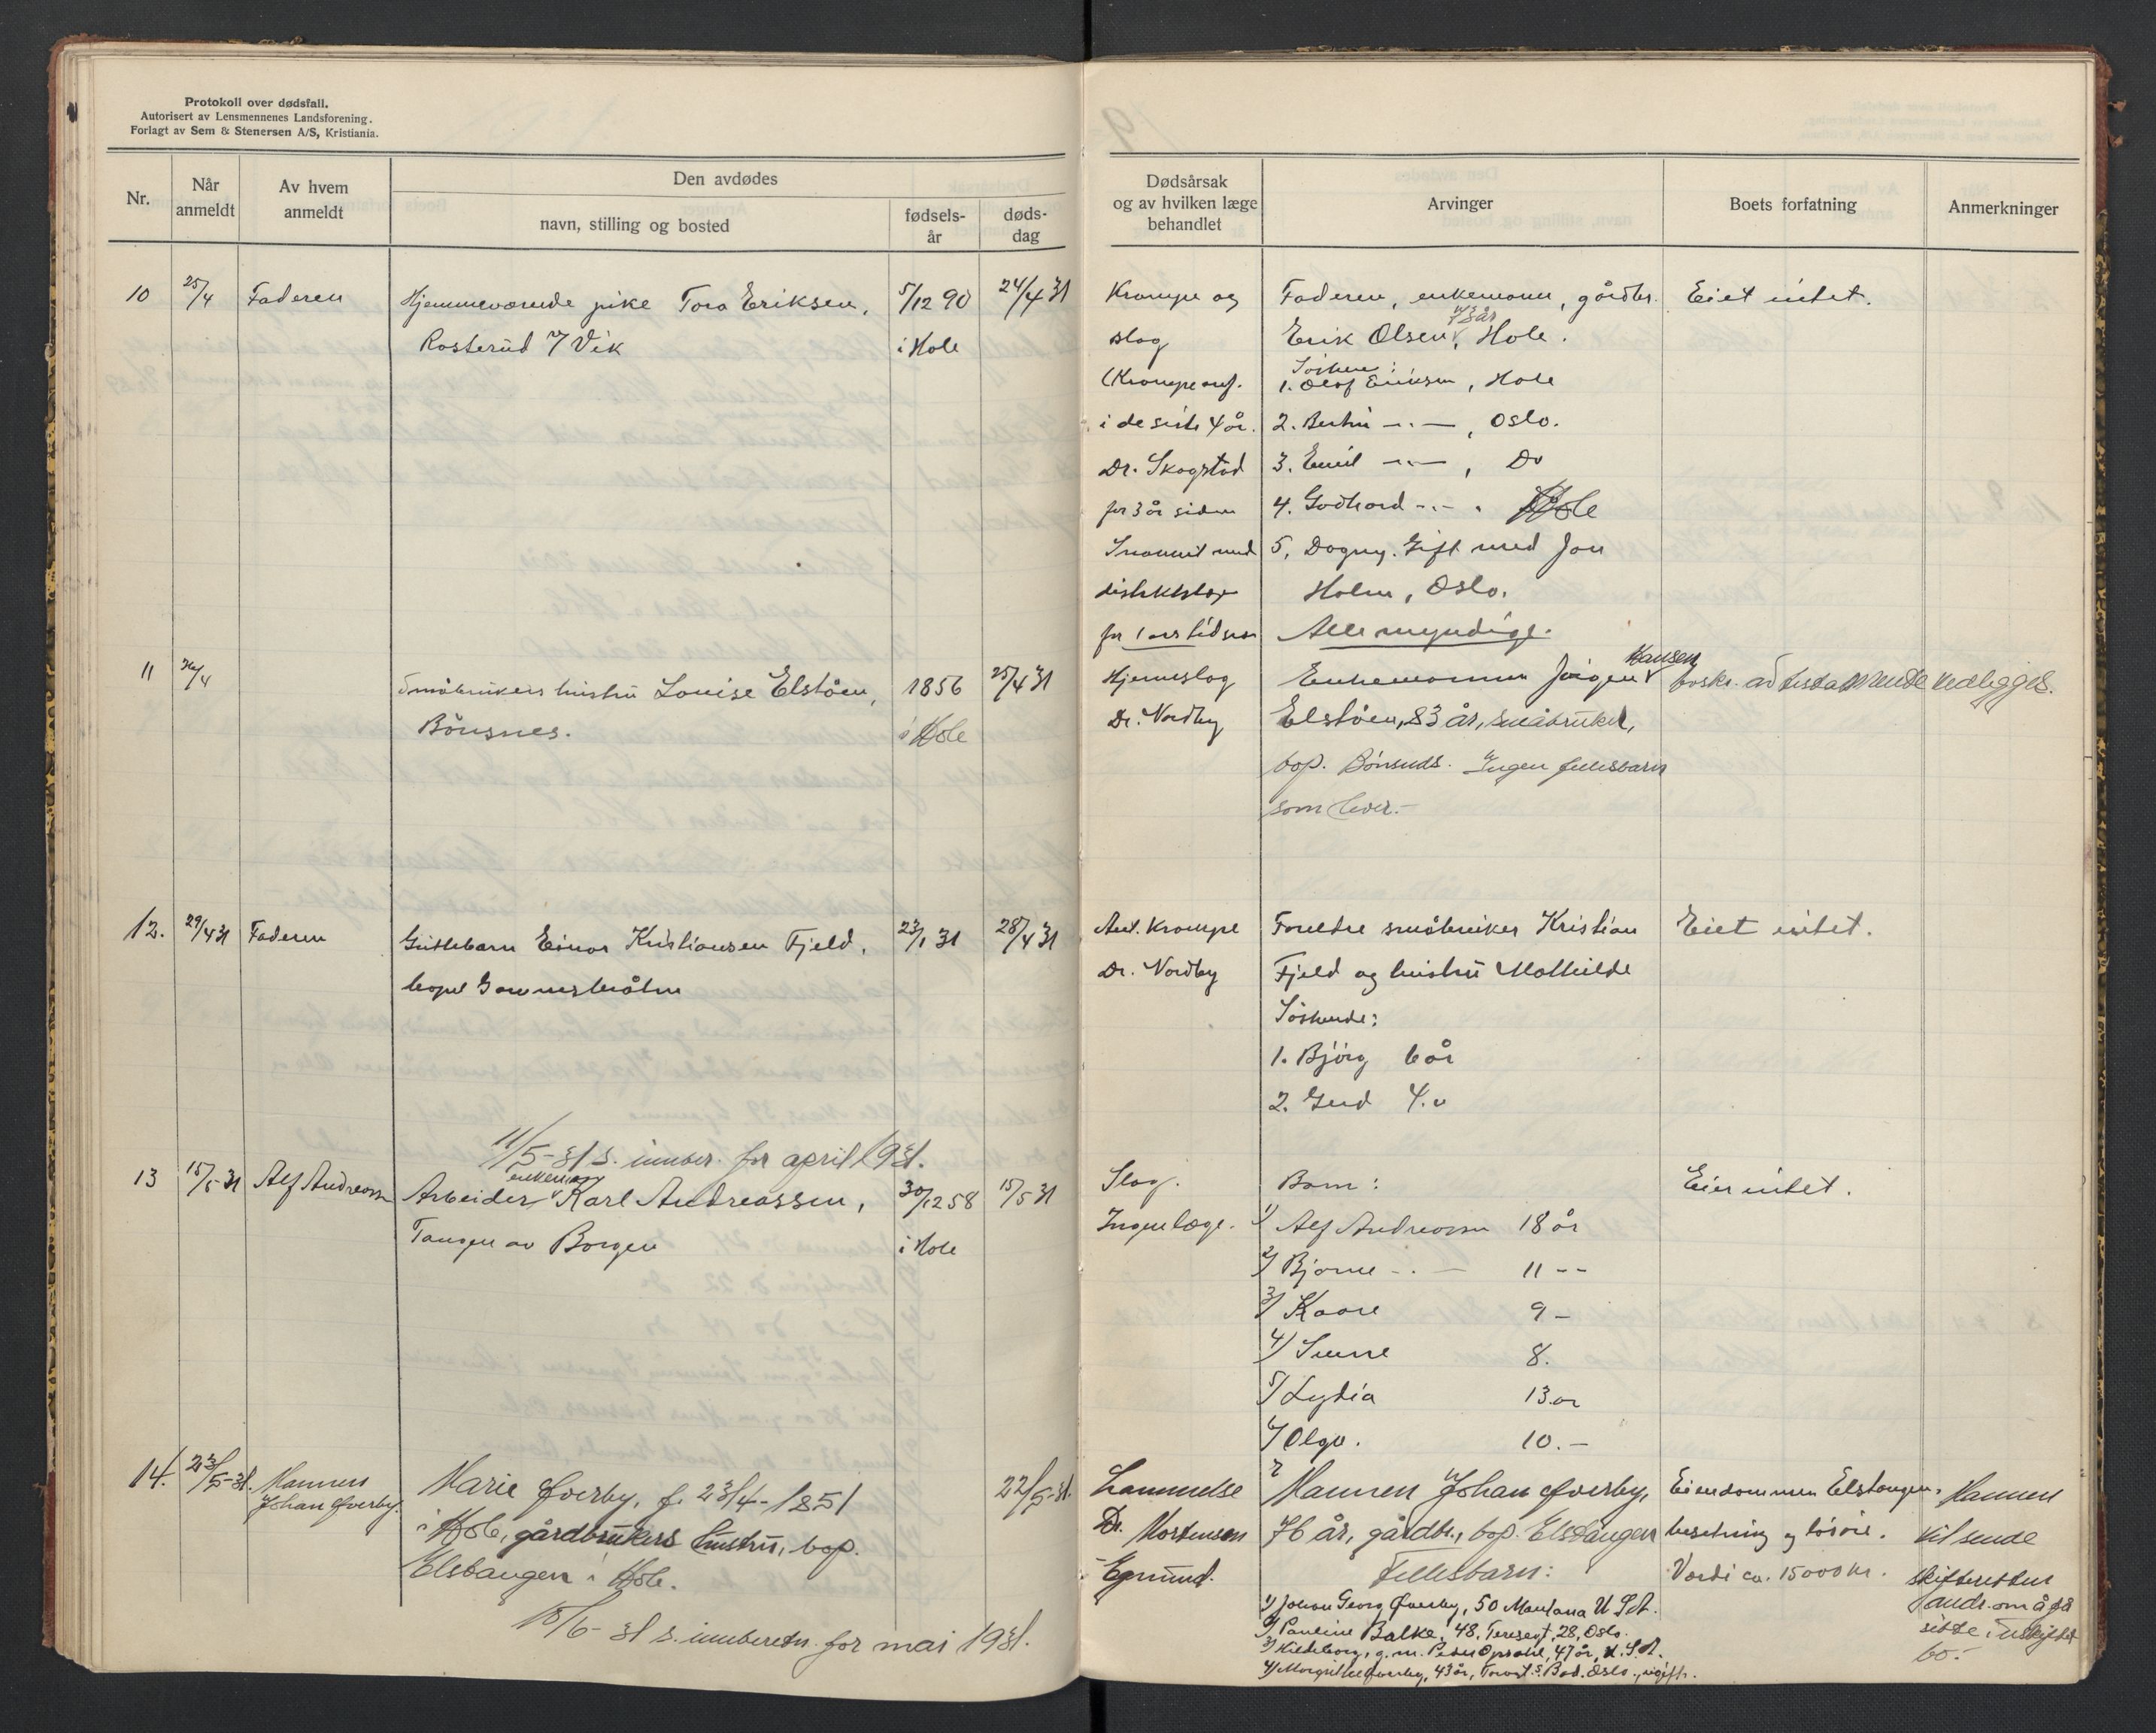 Protokoll over dødsfall.
Autorisert av Lensmennenes Landsforening.
Forlagt av Sem & Stenersen A/S, Kristiania.
Nr.
Når anmeldt
Av hvem anmeldt
Den avdødes
navn, stilling og bosted
fødsels-år
døds-dag
Dødsårsak og av hvilken læge behandlet
Arvinger
Boets forfatning
Anmerkninger
10 25/4 Faderen Hjemmeværende pike Tora Eriksen, 5/12 90 24/4 31
Rosterud 7/ Vik i Hole
Krampe og
slag
(Krampe
i de siste 4 år.
Dr. Skogstad
for 3 år siden
distriktslæge
for 1 siden
Faderen, enkemann, gårdbr.
Erik Olsen, Hole.
Søsken:
1. Olof Eriksen, Hole
2. —..—, Oslo.
3. Emil —..—, Do
4. Godhard -..- . Hole
5. Dagny. Gift med Jon
Holm, Oslo.
Alle myndige.
Eiet intet.
11 26/4 Småbrukers hustru Louise Elstøen, 1856 25/4 31
Bönsnes. i Hole
Hjerneslag
Dr. Nordby
Enkemannen Jørgen Hansen
Elstøen, 83 år, småbruker,
bop. Bönsnes. Ingen fellesbarn
som lever.-
vedlegges.
12. 29/4 31 Faderen Guttebarn Einar Kristiansen Fjeld, 23/1 31 28/4 31
bopel
Ant. Krampe
Dr. Nordby
Foreldre småbruker Kristian
Fjeld og hustru Mathilde
Søskende:
1. Bjørg 6 år
2. Gerd 4. "
Eiet intet.
11/5-31 s. innber. for april 1931.
13 15/5 31 Alf Andreassen Arbeider, enkem. Karl Andreassen, 30/12 58 15/5 31
Tangen av Borgen i Hole
Slag.
Ingen læge.
Barn:
1) Alf Andreassen 18 år
2) Bjarne -..- 11 --
3) Kaare 9 -
4) 8.
5) Lydia 13 år
6) Olga. 10.-
Eier intet.
14. 23/5-31. Mannen
Johan Øverby.
Marie Øverby, f. 23/4-1851
i Hole, gårdbrukers hustru, bop.
Elstangen i Hole.
22/5-31.
Lammelse
Dr. Mortensen
Egnund.
Mannen Johan Øverby,
76 år, gårdbr., bop. Elstangen
Fellesbarn:
1) Johan Georg Øverby, 50 Montana U.S.A.
2) Pauline Balke, 48, Teresegt, 28, Oslo.
3) Hildeborg, g.m. Peder Opsahl, 47 år, U.S.A.
4) Margrithe Øverby, 43 år, Oslo., ugift.
Eiendommen Elstangen,
besetning og løsøre.
Verdi ca. 15000 kr.
Mannen
vil sende
skifteretten
andr. om å få
sitte i uskiftet
bo.-
15/6-31 s. innberetn. for mai 1931.